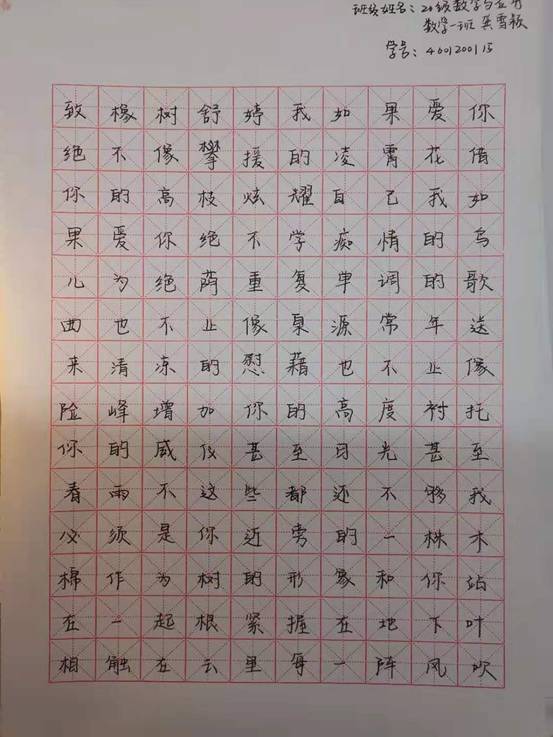 班级姓名：20级数学与应用
数学一班 吴雪
学号：
致橡树舒婷我如果爱你
绝不像攀援的凌霄花借
你的高枝炫耀自己我如
果爱你绝不学痴情的鸟
儿为绝荫重复单调的歌
曲也不止像泉源常年送
来清凉的慰藉也不止像
险峰增加你的高度衬托
你的威仪甚至日光甚至
春雨不这些都还不够我
必须是你近旁的一株木
棉作为树的形象和你站
在一起根紧握在地下叶
相触在云里每一阵风吹